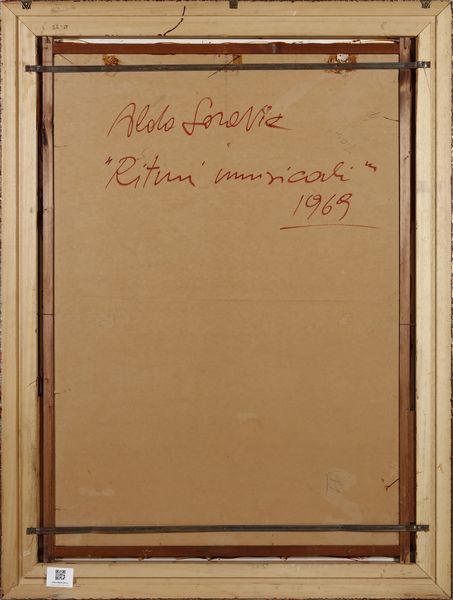 Aldo Soravia
"Ritmi musicali"
1969